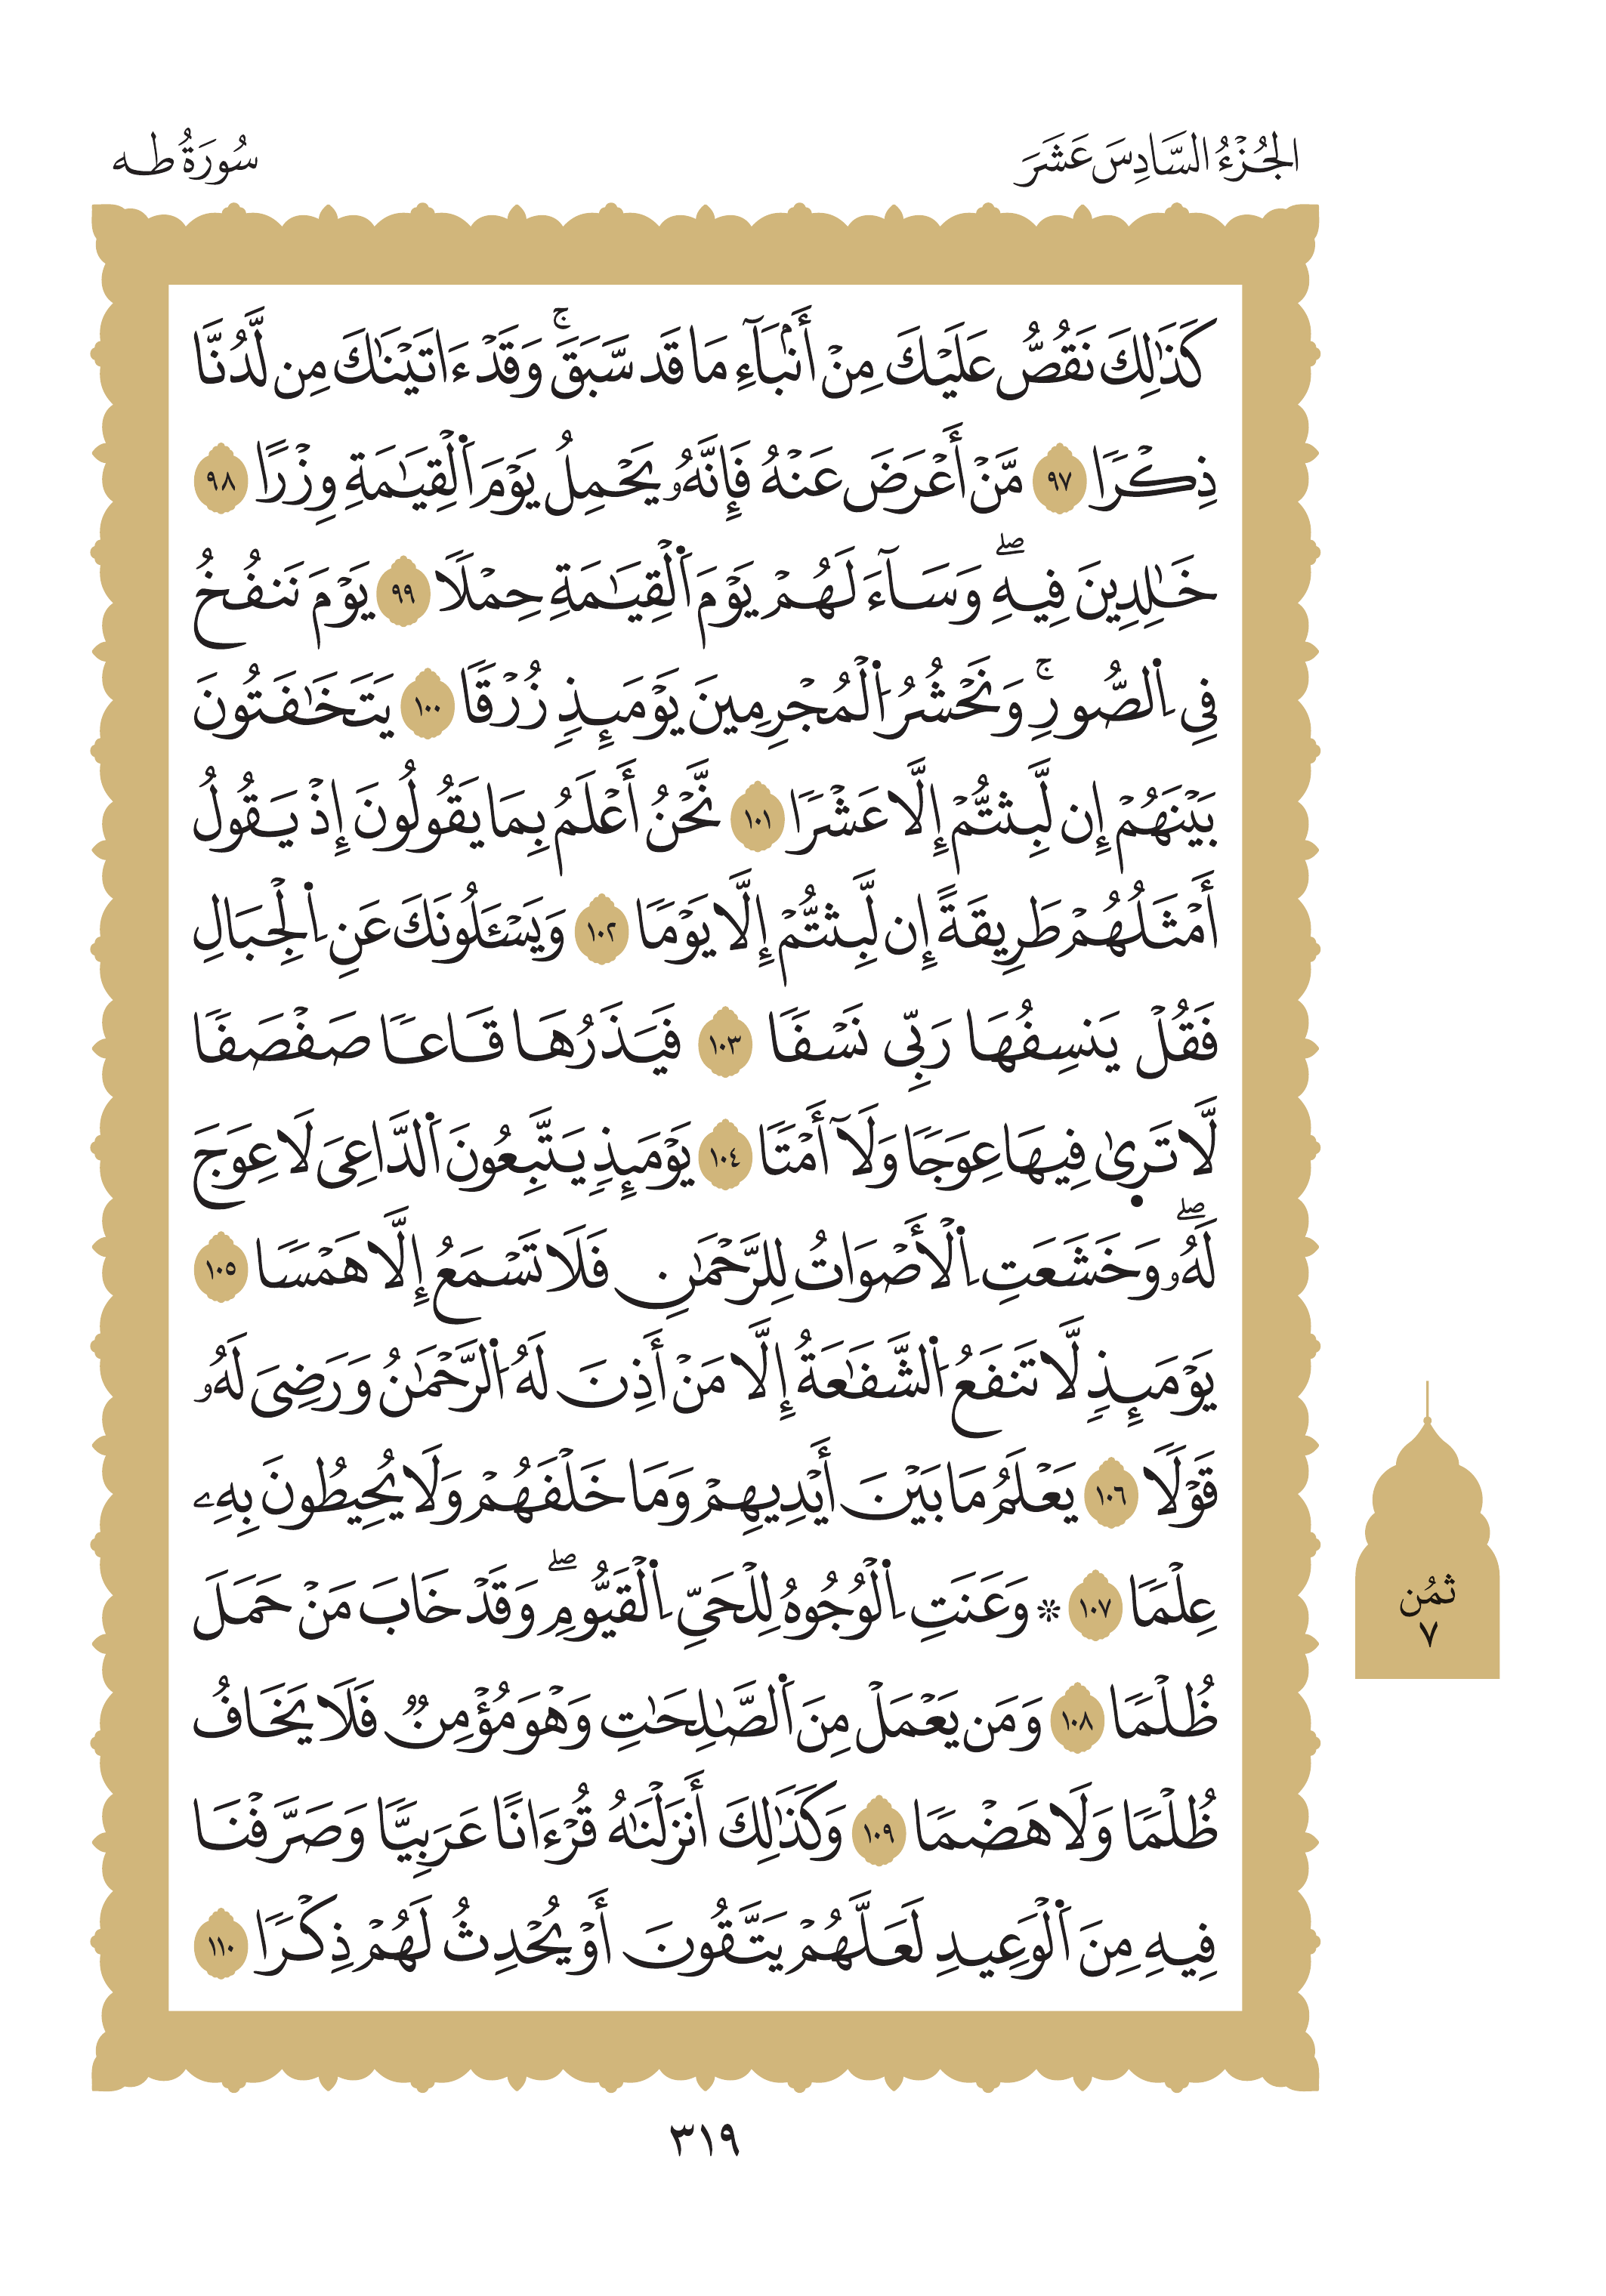 الجُزْءُ السَّادِسَ عَشَرَ
سُورَةُ طه
كَذَٰلِكَ نَقُصُّ عَلَيْكَ مِنْ أَنۢبَآءِ مَا قَد سَّبَقَۚ وَقَدْ ءَاتَيْنَٰكَ مِن لَّدُنَّا
ذِكْرًا ٩٧ مَّنْ أَعْرَضَ عَنْهُ فَإِنَّهُۥ يَحْمِلُ يَوْمَ اَ۬لْقِيَٰمَةِ وِزْرًا ٩٨
خَٰلِدِينَ فِيهِۖ وَسَآءَ لَهُمْ يَوْمَ اَ۬لْقِيَٰمَةِ حِمْلًا ٩٩ يَوْمَ نَنفُخُ
فِي اِ۬لصُّورِۚ وَنَحْشُرُ اُ۬لْمُجْرِمِينَ يَوْمَئِذٍ زُرْقًا ١٠٠ يَتَخَٰفَتُونَ
بَيْنَهُمْ إِن لَّبِثتُّمْ إِلَّا عَشْرًا ١٠١ نَّحْنُ أَعْلَمُ بِمَا يَقُولُونَ إِذْ يَقُولُ
أَمْثَلُهُمْ طَرِيقَةً إِن لَّبِثتُّمْ إِلَّا يَوْمًا ١٠٢ وَيَسْـَٔلُونَكَ عَنِ اِ۬لْجِبَالِ
فَقُلْ يَنسِفُهَا رَبِّي نَسْفًا ١٠٣ فَيَذَرُهَا قَاعًا صَفْصَفًا
لَّا تَر۪ىٰ فِيهَا عِوَجًا وَلَآ أَمْتًا ١٠٤ يَوْمَئِذٍ يَتَّبِعُونَ اَ۬لدَّاعِيَ لَا عِوَجَ
لَهُۥۖ وَخَشَعَتِ اِ۬لْأَصْوَاتُ لِلرَّحْمَٰنِ فَلَا تَسْمَعُ إِلَّا هَمْسًا ١٠٥
يَوْمَئِذٍ لَّا تَنفَعُ اُ۬لشَّفَٰعَةُ إِلَّا مَنْ أَذِنَ لَهُ اُ۬لرَّحْمَٰنُ وَرَضِيَ لَهُۥ
قَوْلًا ١٠٦ يَعْلَمُ مَا بَيْنَ أَيْدِيهِمْ وَمَا خَلْفَهُمْ وَلَا يُحِيطُونَ بِهِۦ
عِلْمًا ١٠٧ ۞ وَعَنَتِ اِ۬لْوُجُوهُ لِلْحَيِّ اِ۬لْقَيُّومِۖ وَقَدْ خَابَ مَنْ حَمَلَ
ظُلْمًا ١٠٨ وَمَن يَعْمَلْ مِنَ اَ۬لصَّٰلِحَٰتِ وَهْوَ مُؤْمِنٌ فَلَا يَخَافُ
ظُلْمًا وَلَا هَضْمًا ١٠٩ وَكَذَٰلِكَ أَنزَلْنَٰهُ قُرْءَانًا عَرَبِيًّا وَصَرَّفْنَا
فِيهِ مِنَ اَ۬لْوَعِيدِ لَعَلَّهُمْ يَتَّقُونَ أَوْ يُحْدِثُ لَهُمْ ذِكْرًا ١١٠
ثُمُن
٧
٣١٩